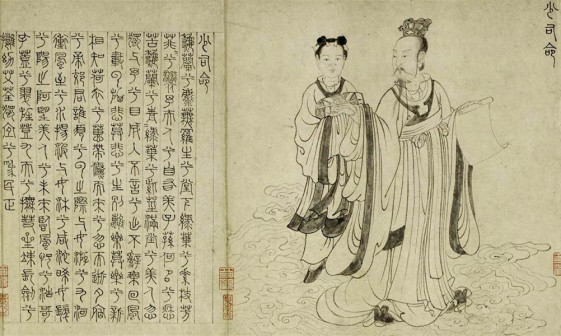 少司命
少司命
秋蘭兮麋蕪羅生兮堂下綠葉兮素枝芳
菲菲兮襲予夫人兮自有美子蓀何以兮愁
苦秋蘭兮青青綠葉兮紫莖滿堂兮美人忽
獨與余兮目成入不言兮出不辭乘回風
兮載雲旗悲莫悲兮生別離樂莫樂兮新
相知荷衣兮蕙帶儵而來兮忽而逝夕宿
兮帝郊君誰須兮雲之際與女遊兮九河
衝風至兮水揚波與女沐兮咸池晞女髮
兮陽之阿望美人兮未來臨風怳兮浩歌
孔蓋兮翠旌登九天兮撫彗星竦長劍兮
擁幼艾荃獨宜兮為民正